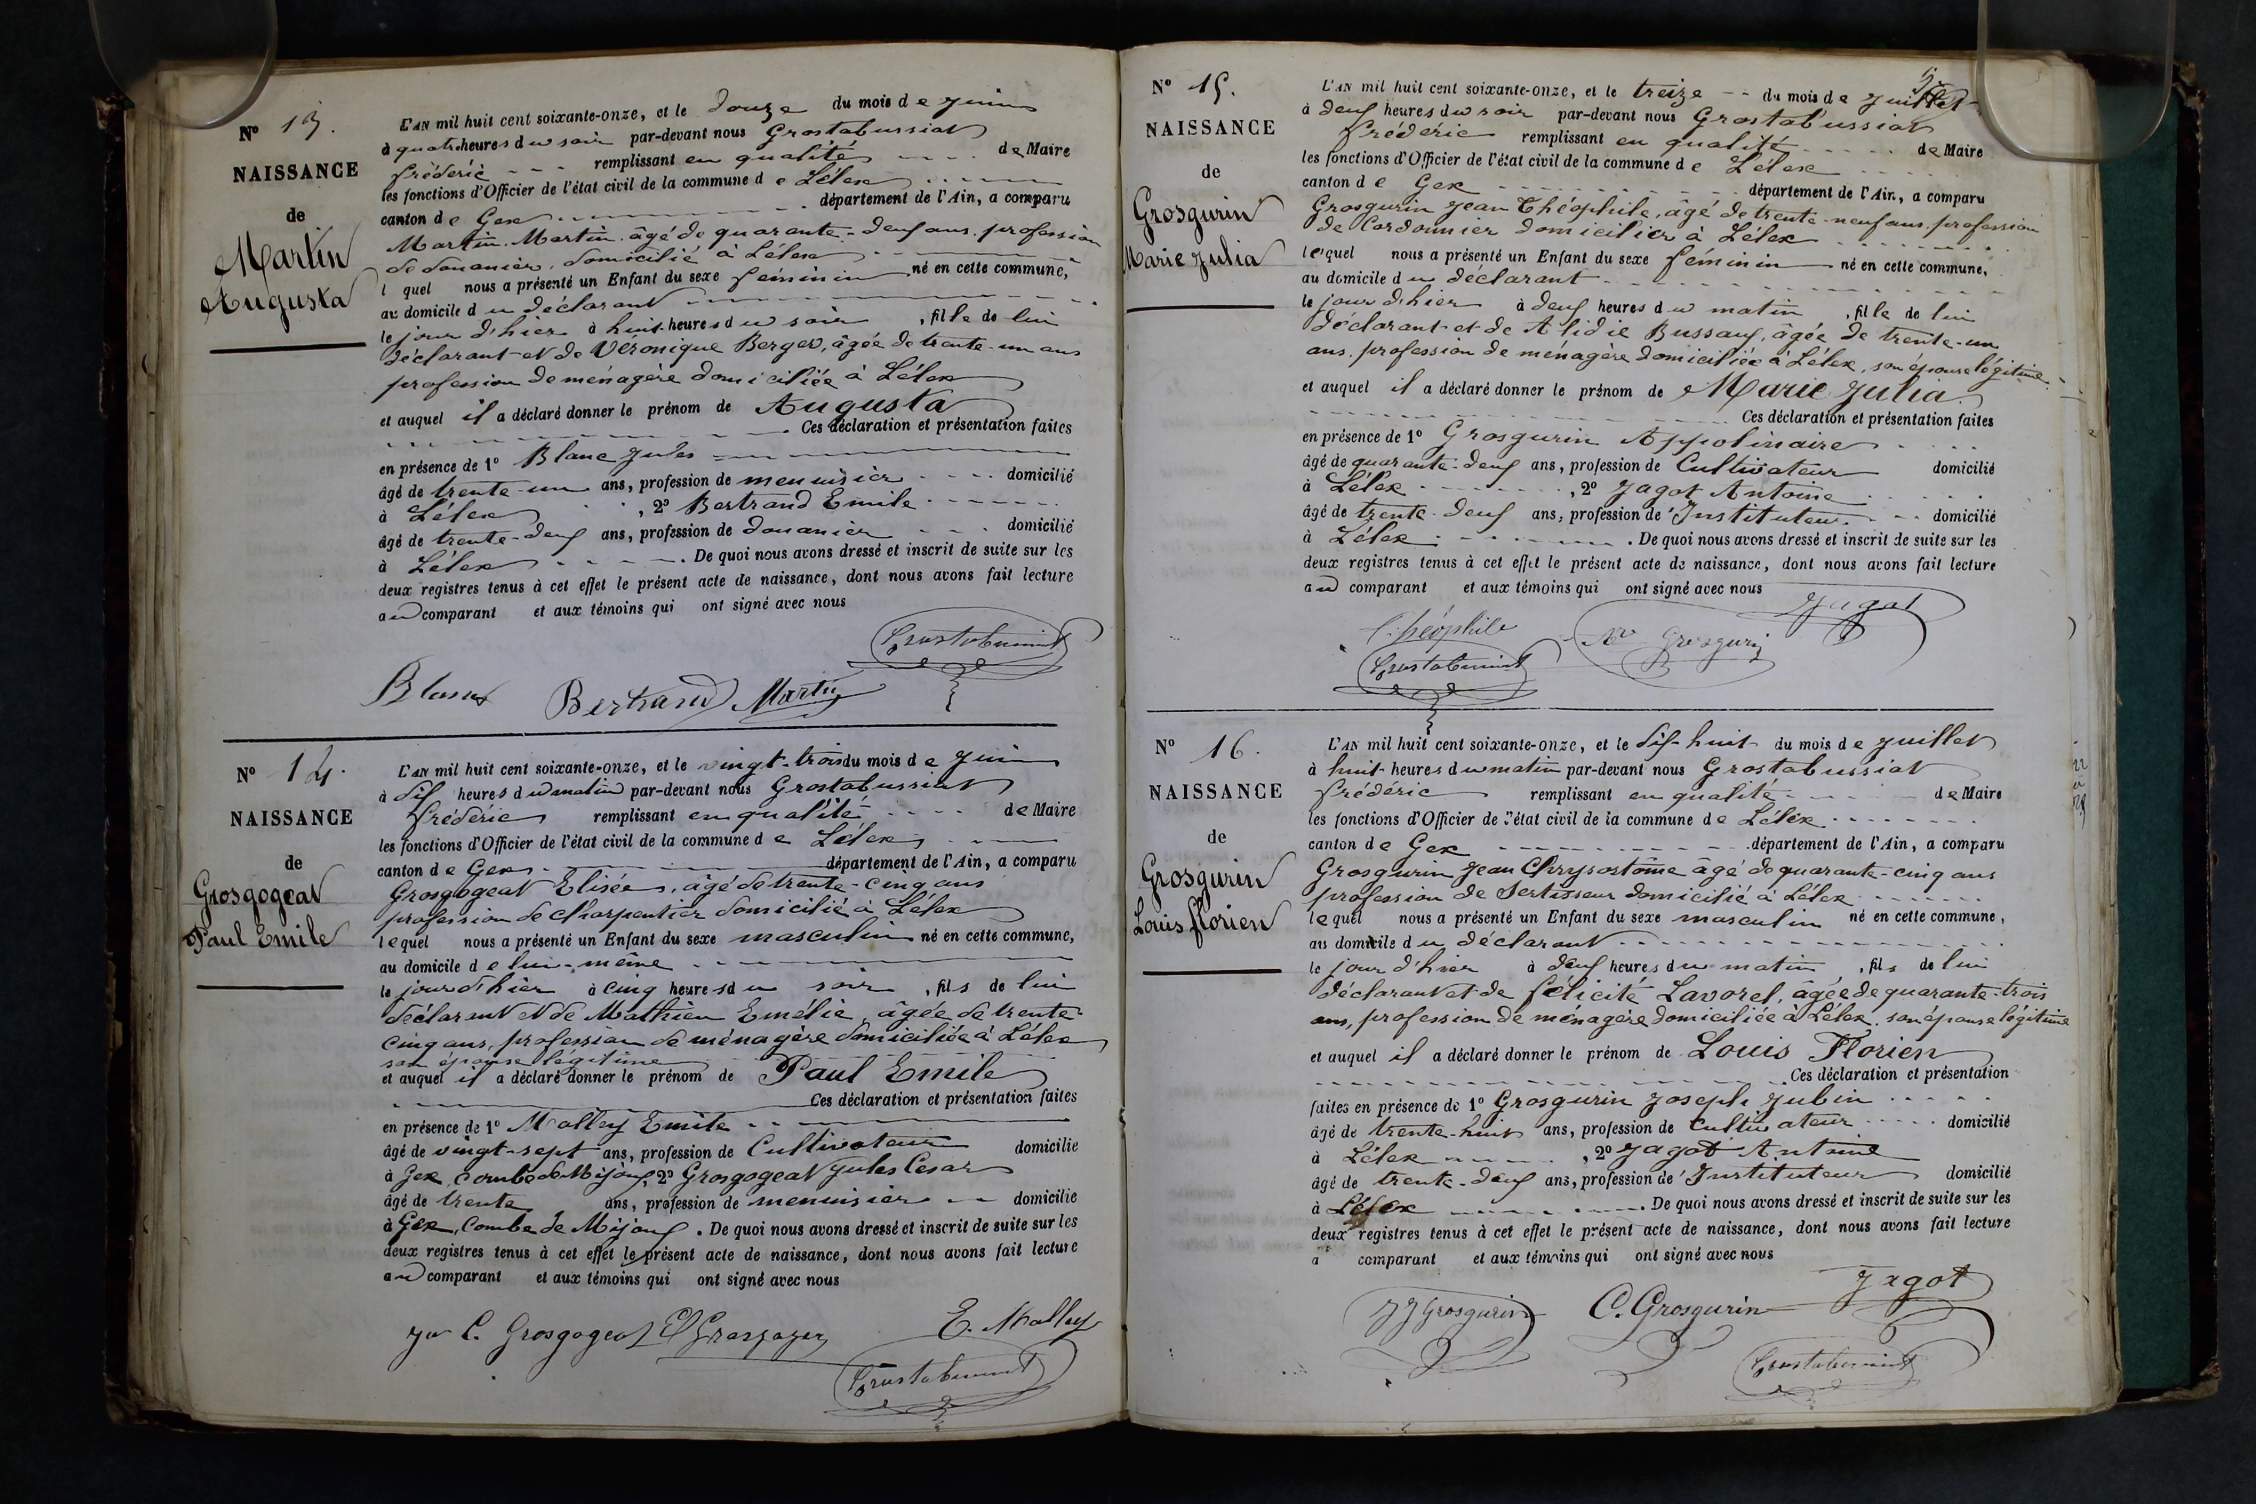 N° 13.
NAISSANCE
de
Martin
Augusta
L'AN mil huit cent soixante-onze, et le douze du mois de juin
à quatre heures du soir par-devant nous Grostabussiat
frédéric remplissant en qualité de Maire
les fonctions d'Officier de l'état civil de la commune de Lélex
canton de Gex département de l'Ain, a comparu
Martin Martin âgé de quarante-deux ans, profession
de douanier, domicilié à Lélex
lequel nous a présenté un Enfant du sexe féminin né en cette commune,
au domicile du déclarant
le jour d'hier à huit heures du soir, fille de lui
déclarant et de Véronique Berger, âgée de trente-un ans
profession de ménagère domiciliée à Lélex
et auquel il a déclaré donner le prénom de Augusta
Ces déclaration et présentation faites
en présence de 1° Blanc Jules
âgé de trente-un ans, profession de menuisier domicilié
à Lélex, 2° Bertrand Emile
âgé de trente-deux ans, profession de douanier domicilié
à Lélex. De quoi nous avons dressé et inscrit de suite sur les
deux registres tenus à cet effet le présent acte de naissance, dont nous avons fait lecture
au comparant et aux témoins qui ont signé avec nous
Grostabussiat
Blanc Bertrand Martin
N° 14.
NAISSANCE
de
Grosgogeat
Paul Emile
L'AN mil huit cent soixante-onze, et le vingt-trois du mois de juin
à dix heures du matin par-devant nous Grostabussiat
frédéric remplissant en qualité de Maire
les fonctions d'Officier de l'état civil de la commune de Lélex
canton de Gex département de l'Ain, a comparu
Grosgogeat Elisée, âgé de trente-cinq ans
profession de Charpentier domicilié à Lélex
lequel nous a présenté un Enfant du sexe masculin né en cette commune,
au domicile de lui-même
le jour d'hier à cinq heures du soir, fils de lui
déclarant et de Mathieu Emélie, âgée de trente-
cinq ans, profession de ménagère domiciliée à Lélex
son épouse légitime
et auquel il a déclaré donner le prénom de Paul Emile
Ces déclaration et présentation faites
en présence de 1° Malley Emile
âgé de vingt-sept ans, profession de Cultivateur domicilié
à Gex, combe de Mijoux, 2° Grosgogeat Jules César
âgé de trente ans, profession de menuisier domicilié
à Gex, Combe de Mijoux. De quoi nous avons dressé et inscrit de suite sur les
deux registres tenus à cet effet le présent acte de naissance, dont nous avons fait lecture
au comparant et aux témoins qui ont signé avec nous
E. Malley
C. Grosgogeat
Grostabussiat
N° 15.
NAISSANCE
de
Grosgurin
Marie Julia
L'AN mil huit cent soixante-onze, et le treize du mois de juillet
à deux heures du soir par-devant nous Grostabussiat
frédéric remplissant en qualité de Maire
les fonctions d'Officier de l'état civil de la commune de Lélex
canton de Gex département de l'Ain, a comparu
Grosgurin Jean Théophile, âgé de trente-neuf ans, profession
de Cordonnier domicilier à Lélex
lequel nous a présenté un Enfant du sexe féminin né en cette commune,
au domicile du déclarant
le jour d'hier à deux heures du matin, fille de lui
déclarant et de Alidie Bussaux, âgée de trente-un
ans, profession de ménagère domiciliée à Lélex, son épouse légitime
et auquel il a déclaré donner le prénom de Marie Julia.
Ces déclaration et présentation faites
en présence de 1° Grosgurin Appolinaire
âgé de quarante-deux ans, profession de Cultivateur domicilié
à Lélex, 2° Jagot Antoine
âgé de trente-deux ans, profession de Instituteur domicilié
à Lélex. De quoi nous avons dressé et inscrit de suite sur les
deux registres tenus à cet effet le présent acte de naissance, dont nous avons fait lecture
au comparant et aux témoins qui ont signé avec nous
Jagot
Théophile
Grosgurin
Grostabussiat
N° 16.
NAISSANCE
de
Grosgurin
Louis florien
L'AN mil huit cent soixante-onze, et le dix-huit du mois de juillet
à huit heures du matin par-devant nous Grostabussiat
frédéric remplissant en qualité de Maire
les fonctions d'Officier de l'état civil de la commune de Lélex
canton de Gex département de l'Ain, a comparu
Grosgurin Jean Chrysostôme âgé de quarante-cinq ans
profession de Sertisseur domicilié à Lélex
lequel nous a présenté un Enfant du sexe masculin né en cette commune,
au domicile du déclarant
le jour d'hier à deux heures du matin, fils de lui
déclarant et de félicité Lavorel, âgée de quarante-trois
ans, profession de ménagère domiciliée à Lélex, son épouse légitime
et auquel il a déclaré donner le prénom de Louis Florien
Ces déclaration et présentation
faites en présence de 1° Grosgurin Joseph Jubin
âgé de trente-huit ans, profession de Cultivateur domicilié
à Lélex, 2° Jagot Antoine
âgé de trente-deux ans, profession de Instituteur domicilié
à Lélex. De quoi nous avons dressé et inscrit de suite sur les
deux registres tenus à cet effet le présent acte de naissance, dont nous avons fait lecture
a comparant et aux témoins qui ont signé avec nous
Jagot
JJ Grosgurin C. Grosgurin
Grostabussiat